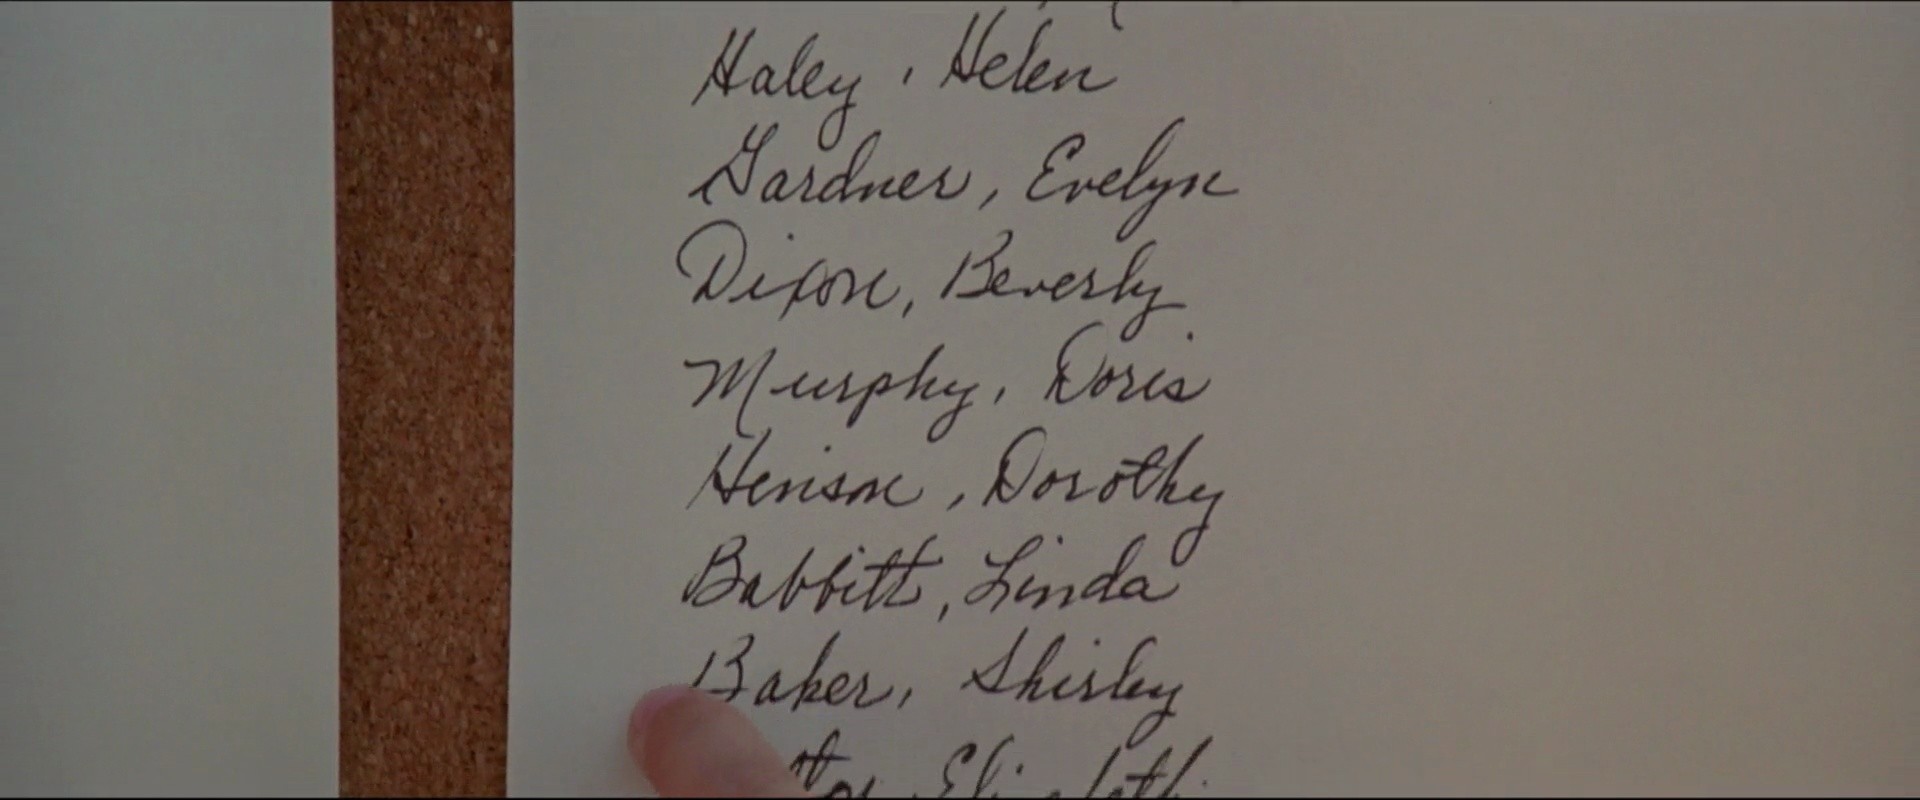 Haley, Helen
Gardner, Evelyn
Dixon, Beverly
Murphy, Doris
Henson, Dorothy
Babbitt, Linda
Baker, Shirley
Elizabeth